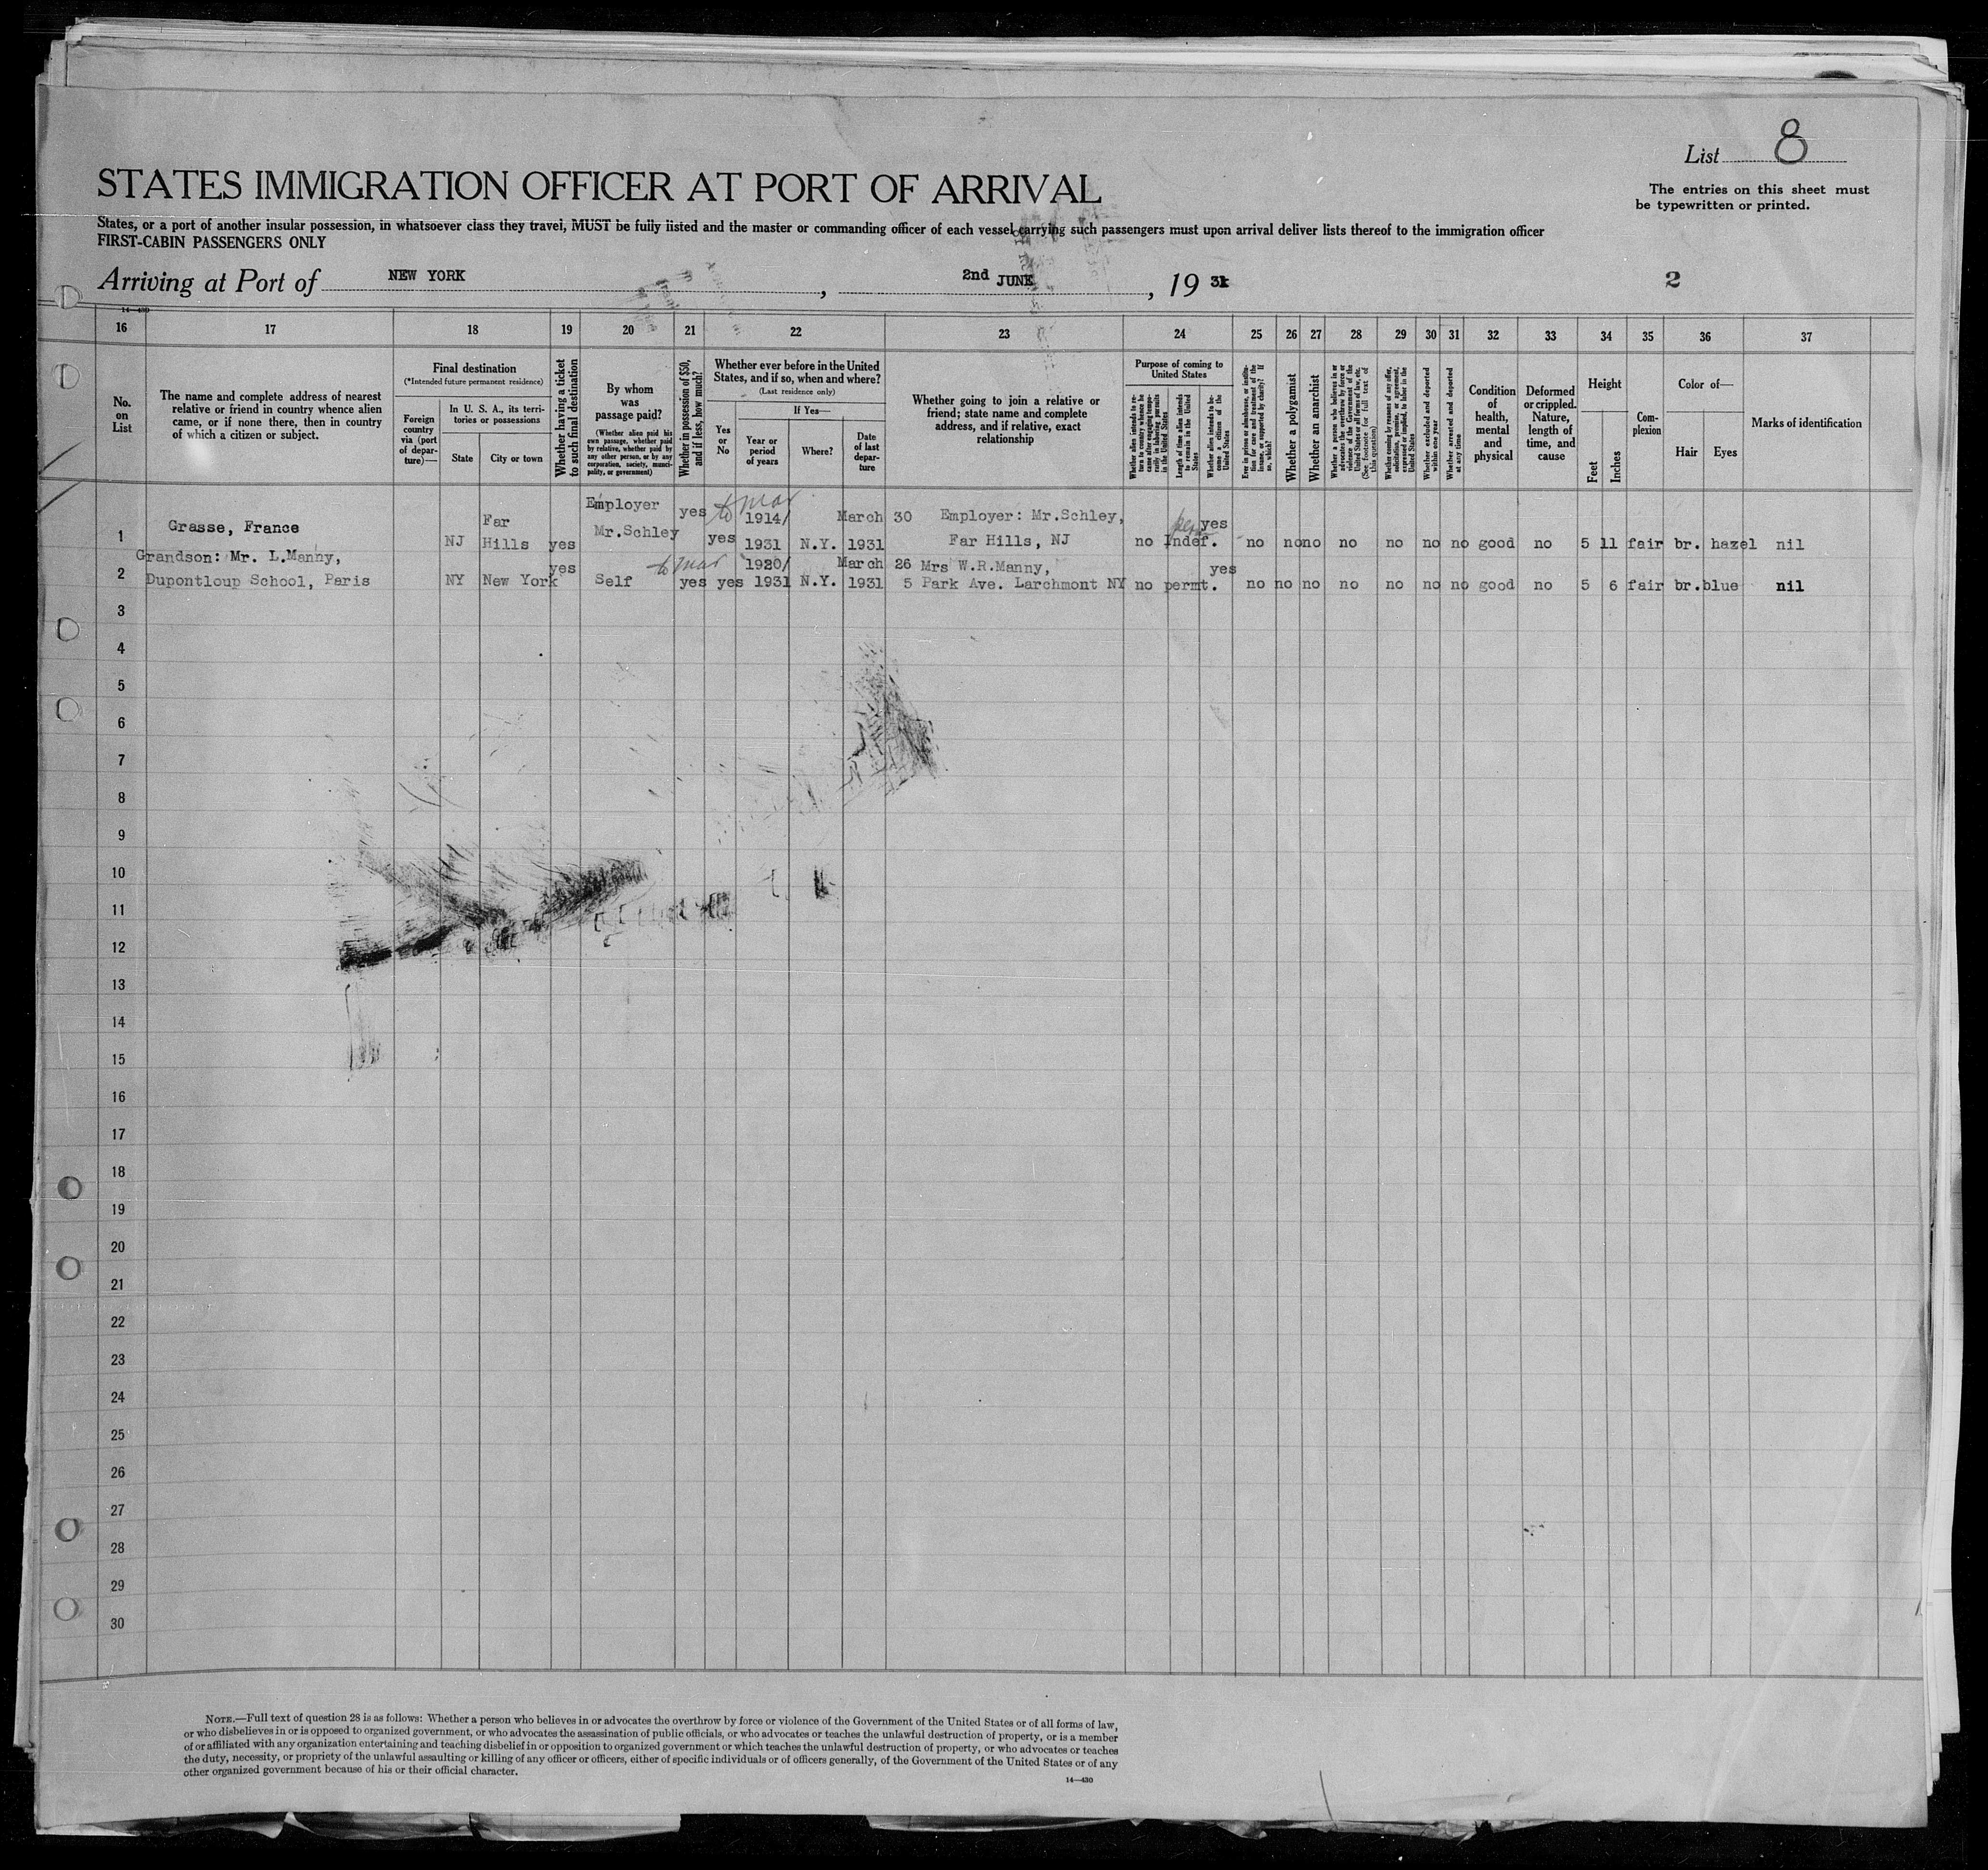 List 8
STATES IMMIGRATION OFFICER AT PORT OF ARRIVAL
The entries on this sheet must
be typewritten or printed.
States, or a port of another insular possession, in whatsoever class they travel, MUST be fully listed and the master or commanding officer of each vessel carrying such passengers must upon arrival deliver lists thereof to the immigration officer
FIRST-CABIN PASSENGERS ONLY
Arriving at Port of NEW YORK, 2nd JUNE, 19 31
2
14—430
16 17 18 19 20 21 22 23 24 25 26 27 28 29 30 31 32 33 34 35 36 37
No.
on
List
The name and complete address of nearest
relative or friend in country whence alien
came, or if none there, then in country
of which a citizen or subject.
Final destination
(*Intended future permanent residence)
Foreign
country
via (port
of depar-
ture)—
In U. S. A., its terri-
tories or possessions
State
City or town
Whether having a ticket
to such final destination
By whom
was
passage paid?
(Whether alien paid his
own passage, whether paid
by relative, whether paid by
any other person, or by any
corporation, society, munici-
pality, or government)
Whether in possession of $50,
and if less, how much?
Whether ever before in the United
States, and if so, when and where?
(Last residence only)
Yes
or
No
If Yes—
Year or
period
of years
Where?
Date
of last
depar-
ture
Whether going to join a relative or
friend; state name and complete
address, and if relative, exact
relationship
Purpose of coming to
United States
Whether alien intends to re-
turn to country whence he
came after engaging tempo-
rarily in laboring pursuits
in the United States
Length of time alien intends
to remain in the United
States
Whether alien intends to be-
come a citizen of the
United States
Ever in prison or almshouse, or institu-
tion for care and treatment of the
insane, or supported by charity? If
so, which?
Whether a polygamist
Whether an anarchist
Whether a person who believes in or
advocates the overthrow by force or
violence of the Government of the
United States or all forms of law, etc.
(See footnote for full text of
this question)
Whether coming by reason of any offer,
solicitation, promise, or agreement,
expressed or implied, to labor in the
United States
Whether excluded and deported
within one year
Whether arrested and deported
at any time
Condition
of
health,
mental
and
physical
Deformed
or crippled.
Nature,
length of
time, and
cause
Height
Feet
Inches
Com-
plexion
Color of—
Hair
Eyes
Marks of identification
Employer to Mar
Far yes 1914/ March 30 Employer: Mr.Schley, perm yes
1 Grasse, France NJ Hills yes Mr.Schley yes 1931 N.Y. 1931 Far Hills, NJ no Indef. no no no no no no no good no 5 11 fair br. hazel nil
Grandson: Mr. L.Manny, yes to Mar 1920/ March 26 Mrs W.R.Manny, yes
2 Dupontloup School, Paris NY New York Self yes yes 1931 N.Y. 1931 5 Park Ave. Larchmont NY no permt. no no no no no no no good no 5 6 fair br. blue nil
3
4
5
6
7
8
9
10
11
12
13
14
15
16
17
18
19
20
21
22
23
24
25
26
27
28
29
30
NOTE.—Full text of question 28 is as follows: Whether a person who believes in or advocates the overthrow by force or violence of the Government of the United States or of all forms of law,
or who disbelieves in or is opposed to organized government, or who advocates the assassination of public officials, or who advocates or teaches the unlawful destruction of property, or is a member
of or affiliated with any organization entertaining and teaching disbelief in or opposition to organized government or which teaches the unlawful destruction of property, or who advocates or teaches
the duty, necessity, or propriety of the unlawful assaulting or killing of any officer or officers, either of specific individuals or of officers generally, of the Government of the United States or of any
other organized government because of his or their official character.
14—430